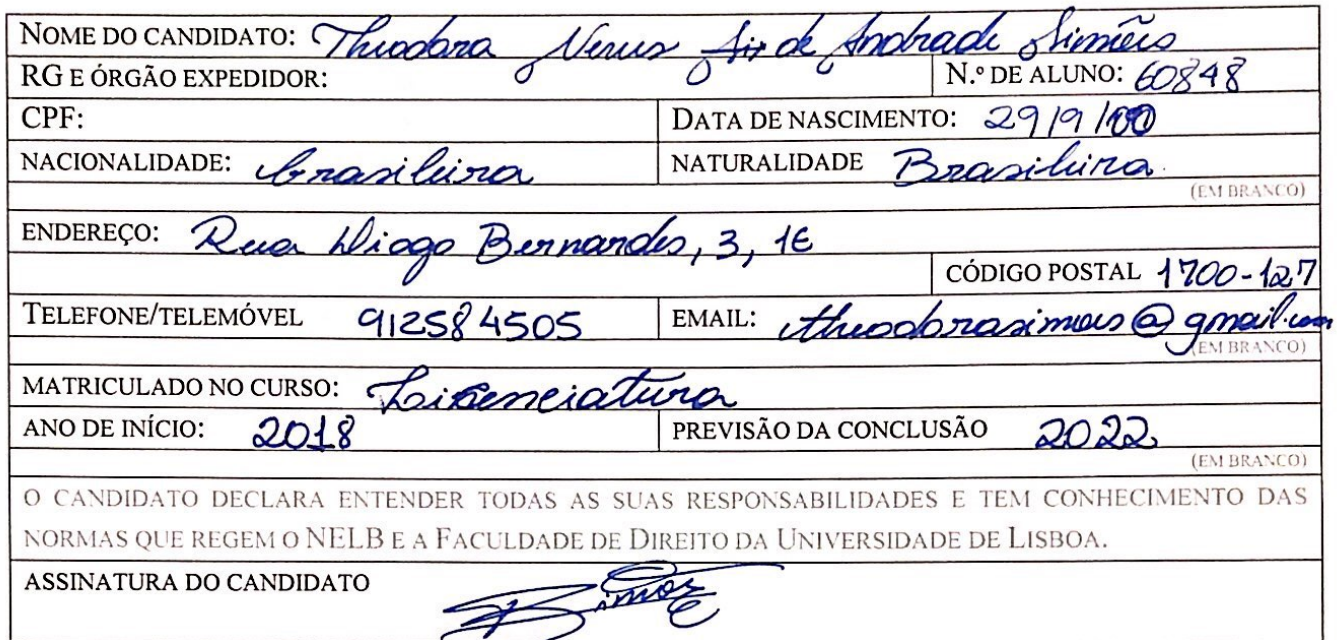 NOME DO CANDIDATO: Theodora Venus de Andrade Simões
RG E ÓRGÃO EXPEDIDOR: N.º DE ALUNO: 60848
CPF: DATA DE NASCIMENTO: 29/9/00
NACIONALIDADE: brasileira NATURALIDADE Brasileira
(EM BRANCO)
ENDEREÇO: Rua Diogo Bernardes, 3, 1E
CÓDIGO POSTAL 1700-127
TELEFONE/TELEMÓVEL 912584505 EMAIL: theodorasimoes@gmail.com
(EM BRANCO)
MATRICULADO NO CURSO: Licenciatura
ANO DE INÍCIO: 2018 PREVISÃO DA CONCLUSÃO 2022
(EM BRANCO)
O CANDIDATO DECLARA ENTENDER TODAS AS SUAS RESPONSABILIDADES E TEM CONHECIMENTO DAS
NORMAS QUE REGEM O NELB E A FACULDADE DE DIREITO DA UNIVERSIDADE DE LISBOA.
ASSINATURA DO CANDIDATO